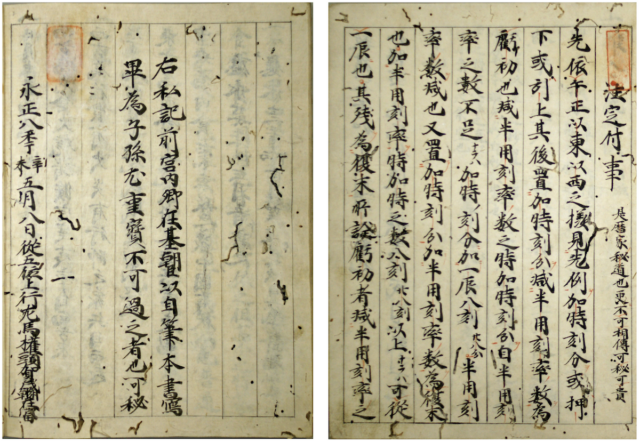 法定付事 是暦家秘道也更不可相傳可秘可貴
先依午正以東以西之 見先例加時刻分或押
下或引上其後置加時刻分減半用刻率數為
虧初也減半用刻率數之時加時刻分自半用刻
率之數不足 加時刻分加一辰八刻
率數減也又置加時刻分加半用刻率數為復末
也加半用刻率時加時之數八刻 以上 可從
一辰也其残為復末所詮虧初者減半用刻率之
右私記前宮内卿在基朝臣以自筆本書寫
畢為子孫尤重寳不可過之者也可秘
永正八季辛未五月八日從五位上行